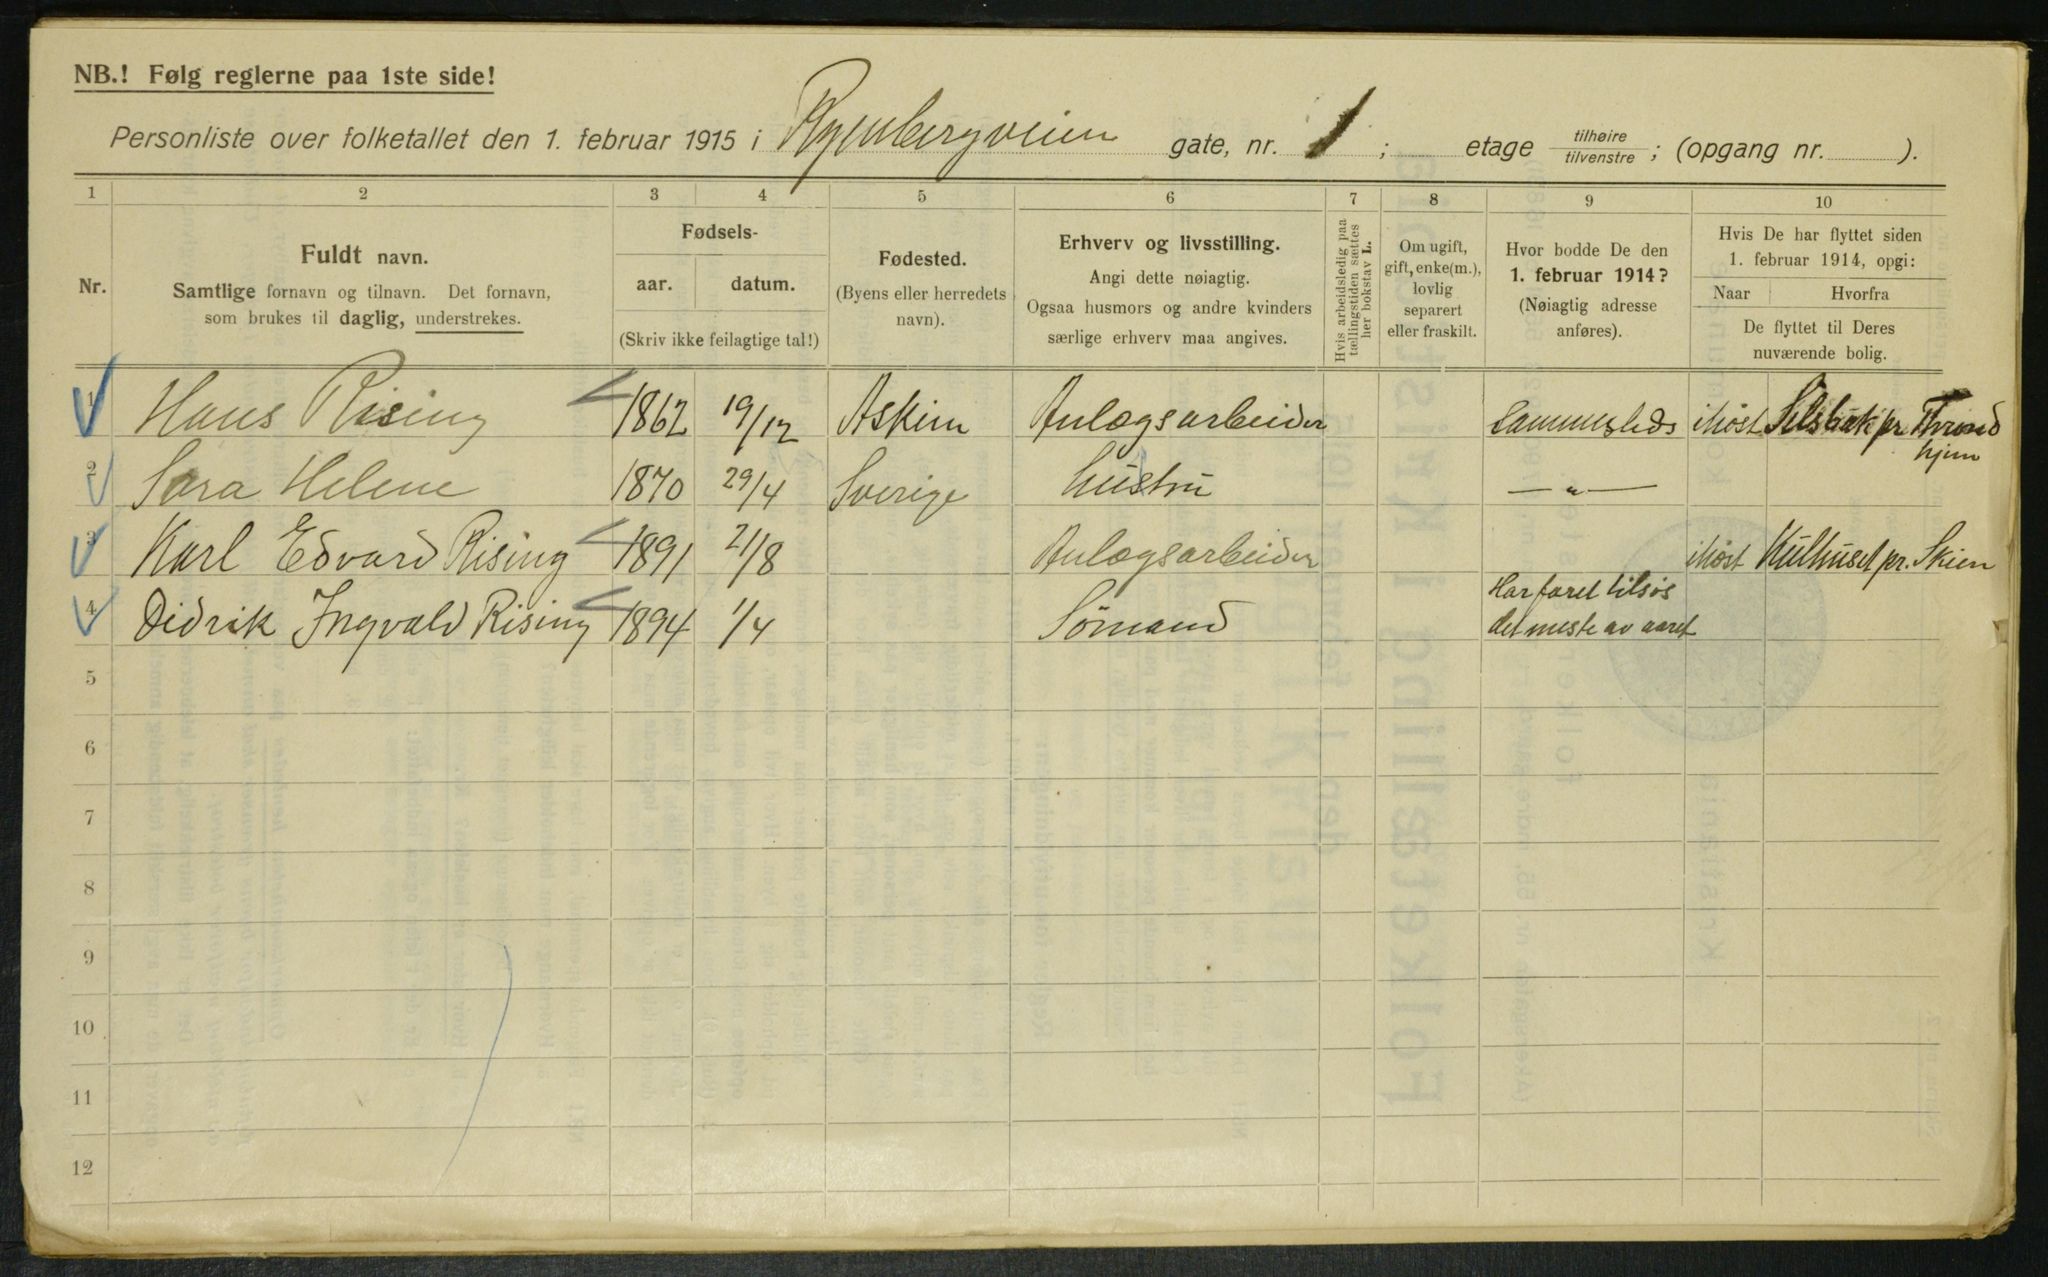 NB.! Følg reglerne paa 1ste side!
Personliste over folketallet den 1. februar 1915 i Ryenbergveien gate, nr. 1 ; etage tilhøire / tilvenstre ; (opgang nr. ).
1 2 3 4 5 6 7 8 9 10
Nr.
Fuldt navn.
Samtlige fornavn og tilnavn. Det fornavn,
som brukes til daglig, understrekes.
Fødsels-
aar. datum.
(Skriv ikke feilagtige tal!)
Fødested.
(Byens eller herredets
navn).
Erhverv og livsstilling.
Angi dette nøiagtig.
Ogsaa husmors og andre kvinders
særlige erhverv maa angives.
Hvis arbeidsledig paa
tællingstiden sættes
her bokstav L.
Om ugift,
gift, enke(m.),
lovlig
separert
eller fraskilt.
Hvor bodde De den
1. februar 1914?
(Nøiagtig adresse
anføres).
Hvis De har flyttet siden
1. februar 1914, opgi:
Naar Hvorfra
De flyttet til Deres
nuværende bolig.
1 Hans Rising 1862 19/12 Askim Anlægsarbeider Sammesteds i høst Selsbak pr Thrond
hjem
2 Sara Helene 1870 29/4 Sverige Hustru — " —
3 Karl Edvard Rising 1891 21/8 Anlægsarbeider i høst Kulhuset pr. Skien
4 Didrik Ingvald Rising 1894 1/4 Sømand Har faret tilsøs
det meste av aaret
5
6
7
8
9
10
11
12